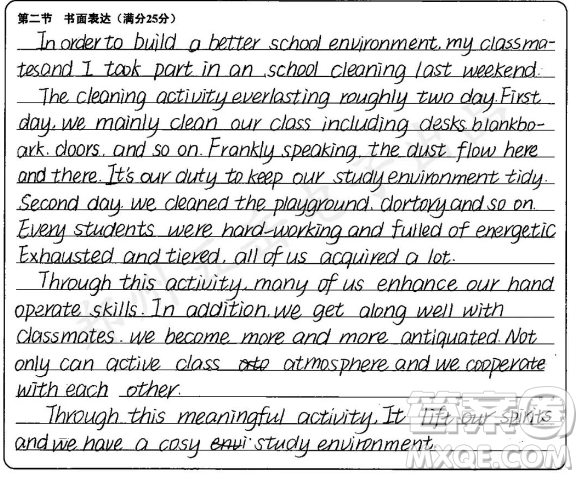 第二节 书面表达（满分25分）
In order to build a better school environment, my classma-
tes and I took part in an school cleaning last weekend.
The cleaning activity everlasting roughly two day. First
day, we mainly clean our class including desks, blankbo-
ark, doors, and so on. Frankly speaking, the dust flow here
and there. It's our duty to keep our study environment tidy.
Second day we cleaned the playground, dortory and so on.
Every students were hard-working and fulled of energetic
Exhausted and tiered, all of us acquired a lot.
Through this activity, many of us enhance our hand
operate skills. In addition, we get along well with
classmates. we become more and more antiquated. Not
only can active class atmosphere and we cooperate
with each other.
Through this meaningful activity, It lift our spirits
and we have a cosy envi study environment.